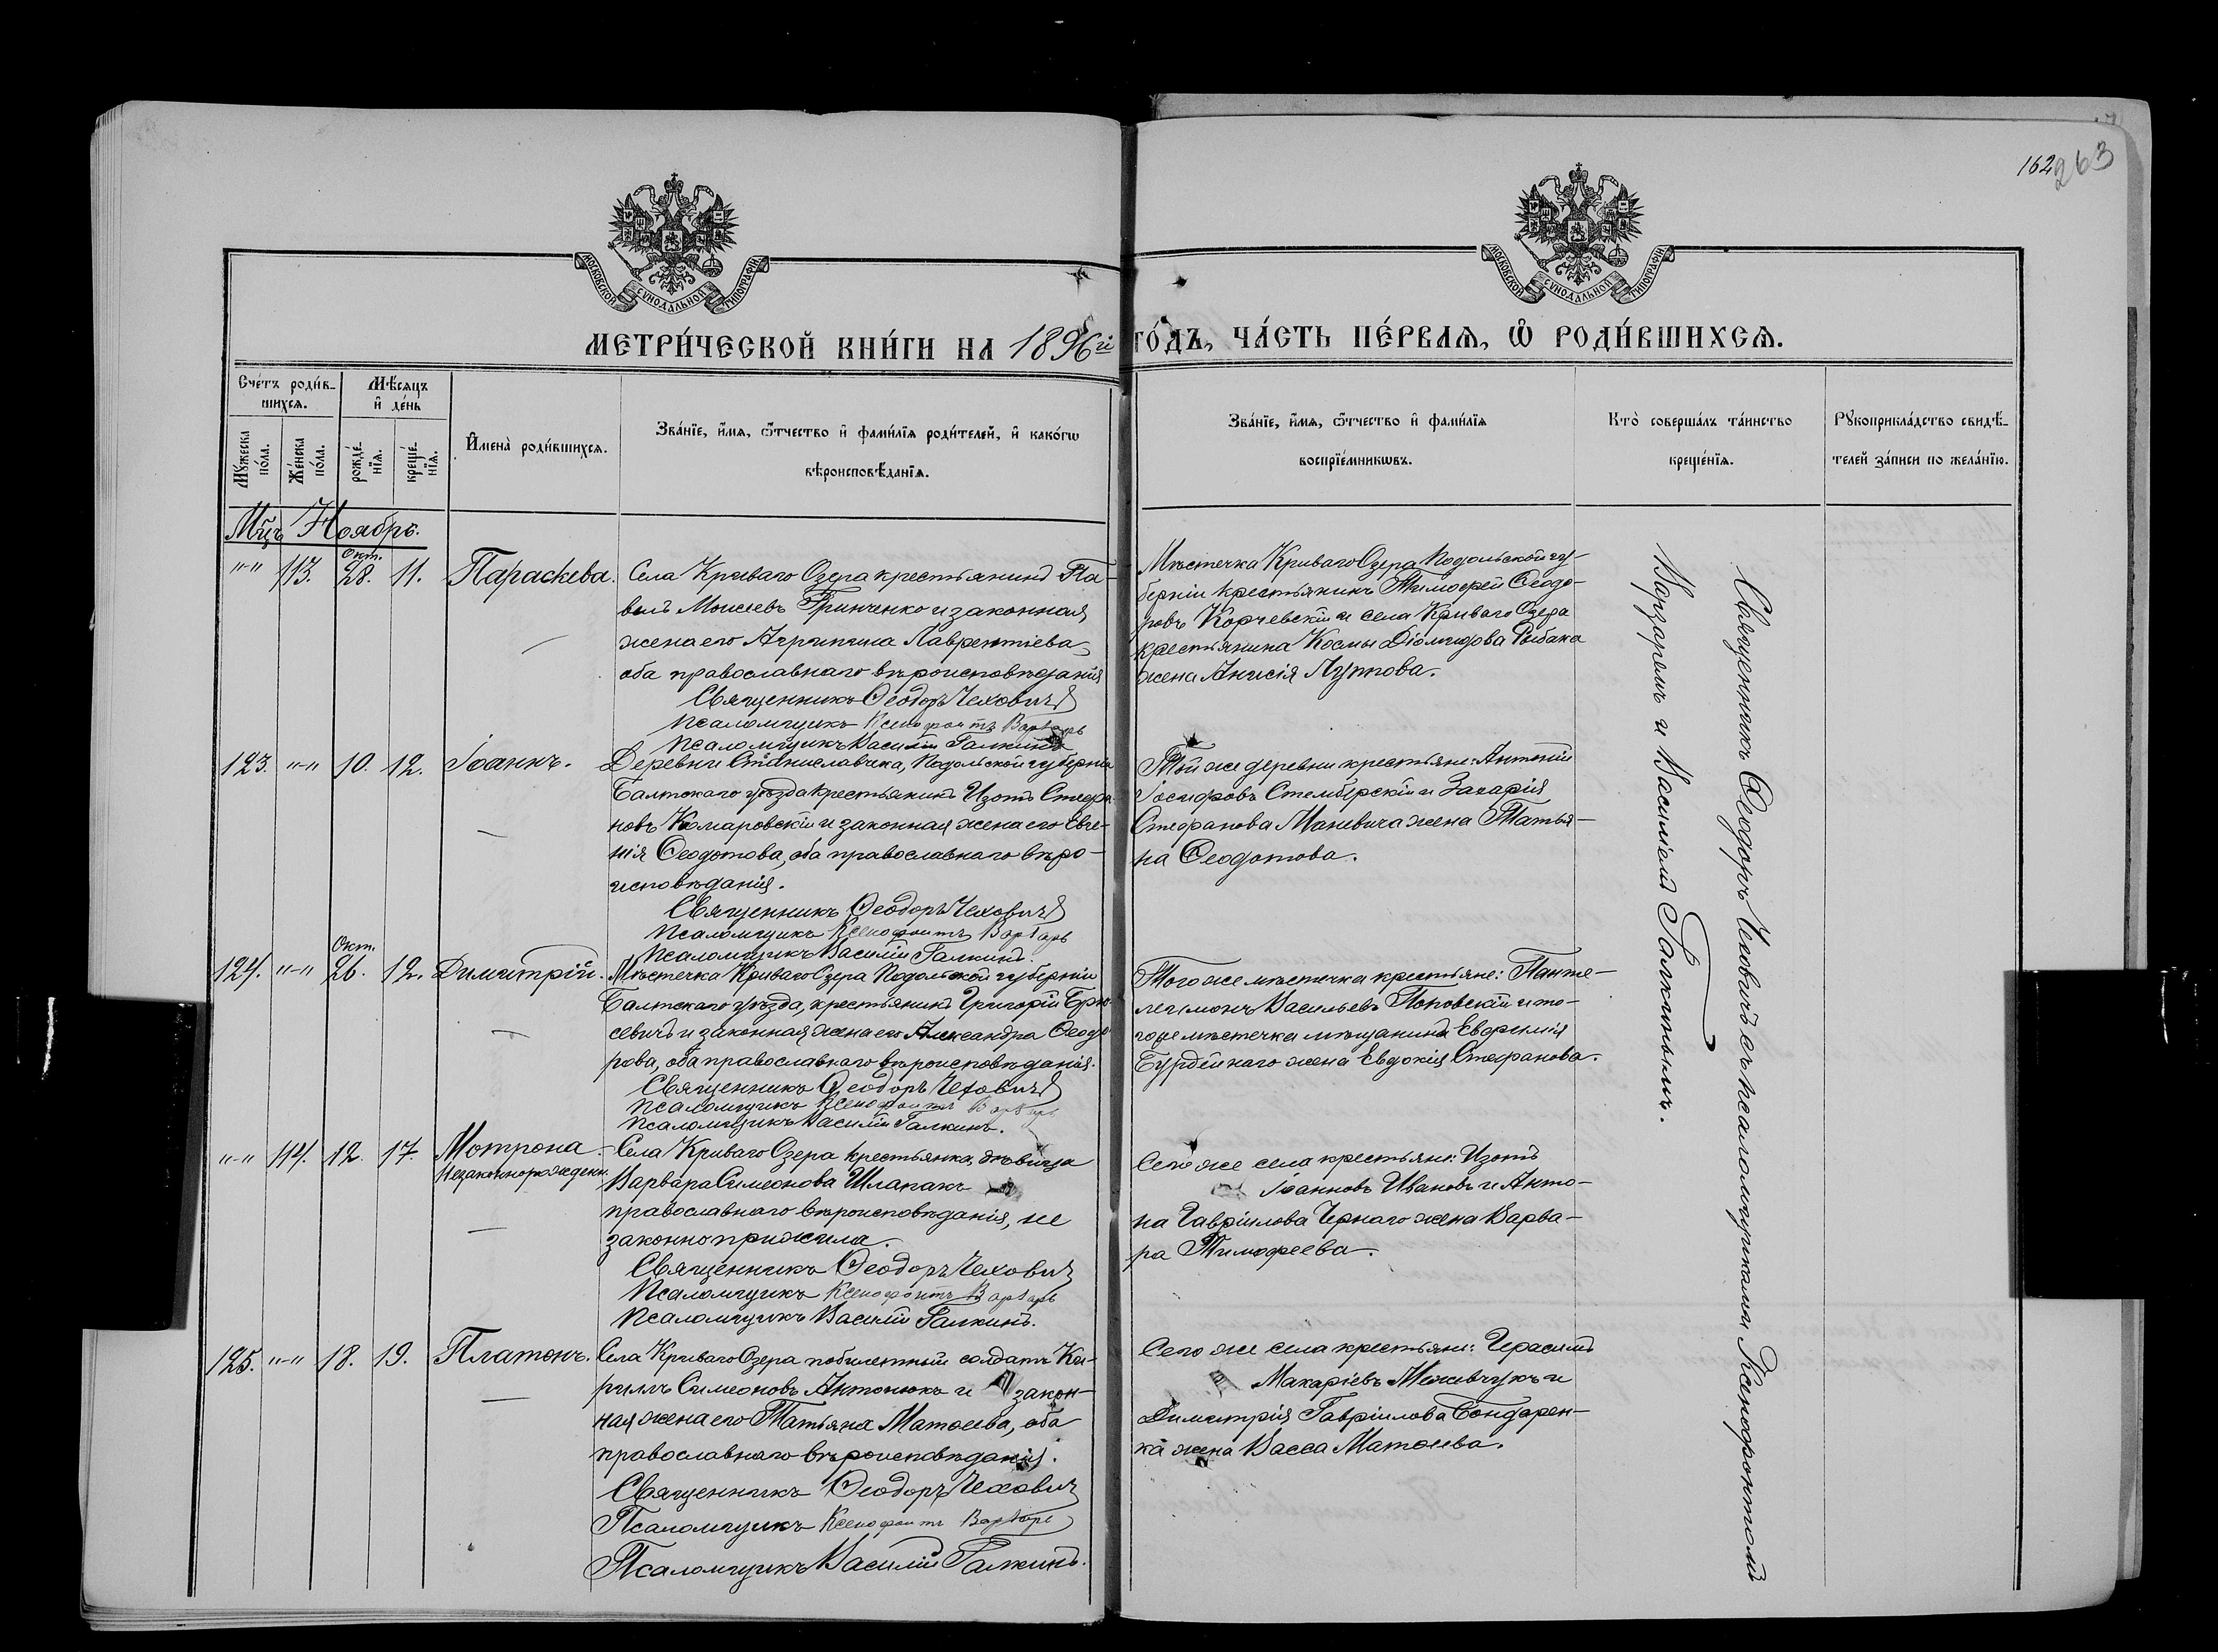 162
263
МОСКОВСКОЙ СѴНОДАЛЬНОЙ ТИПОГРАФІИ
МОСКОВСКОЙ СѴНОДАЛЬНОЙ ТИПОГРАФІИ
МЕТРИ́ЧЕСКОЙ КНИ́ГИ НА 1896й ГО́ДЪ, ЧА́СТЬ ПЕ́РВАѦ, Ѡ РОДИ́ВШИХСѦ.
Сче́тъ роди́в-
шихсѧ.
Мѣ́сяцъ
и҆ де́нь
Мꙋ́жеска по́ла.
Же́нска по́ла.
рожде́-
нїѧ.
креще́-
нїѧ.
И҆мена̀ роди́вшихсѧ.
Зва́нїе, и҆́мѧ, ѻ҆́тчество и҆ фами́лїѧ роди́телей, и҆ како́гѡ
вѣроисповѣ́данїѧ.
Зва́нїе, и҆́мѧ, ѻ҆́тчество и҆ фами́лїѧ
воспрїе́мникѡвъ.
Кто̀ соверша́лъ та́инство
креще́нїѧ.
Рꙋкоприкла́дство свидѣ́-
телей за́писи по жела́нїю.
Мц҃ъ Ноябрь.
"-" 113. Окт. 28. 11. Параскева.
Села Криваго Озера крестьянинъ Па-
велъ Моисеевъ Гринченко и законная
жена его Агрипина Лаврентіева
оба православнаго вѣроисповѣданія
Священникъ Ѳеодоръ Чеховичъ
Псаломщикъ Ксенофонтъ Варзарь
Псаломщикъ Василій Галкинъ
Мѣстечка Криваго Озера Подольской гу-
берніи крестьянинъ Тимофей Ѳеодо-
ровъ Корчевскій и села Криваго Озера
крестьянина Космы Діомидова Рыбака
жена Анисія Луппова.
123. "-" 10. 12. Іоаннъ.
Деревни Станиславчика, Подольской губерніи
Балтскаго уѣзда крестьянинъ Изотъ Стефа-
новъ Комаровскій и законная жена его Евге-
нія Ѳеодотова, оба православнаго вѣро-
исповѣданія.
Священникъ Ѳеодоръ Чеховичъ
Псаломщикъ Ксенофонтъ Варзарь
Псаломщикъ Василій Галкинъ.
Той же деревни крестьяне: Антоній
Іосифовъ Стемберскій и Захарія
Стефанова Маневича жена Татья-
на Ѳеодотова.
124. "-" Окт. 26. 12. Димитрій.
Мѣстечка Криваго Озера Подольской губерніи
Балтскаго уѣзда, крестьянинъ Григорій
севичъ и законная жена его Александра Ѳеодо-
рова, оба православнаго вѣроисповѣданія.
Священникъ Ѳеодоръ Чеховичъ
Псаломщикъ Ксенофонтъ Варзарь
Псаломщикъ Василій Галкинъ.
Того же мѣстечка крестьяне: Панте-
леимонъ Васильевъ Поповскій и то-
го же мѣстечка мѣщанина Евфимія
жена Евдокія Стефанова.
"-" 114. 12. 17. Мотрона
Незаконнорожденн.
Села Криваго Озера крестьянка, дѣвица
Варвара Симеонова Шлапакъ
православнаго вѣроисповѣданія, не
законно прижила.
Священникъ Ѳеодоръ Чеховичъ
Псаломщикъ Ксенофонтъ Варзарь
Псаломщикъ Василій Галкинъ.
Сего же села крестьяне: Изотъ
Іоанновъ Ивановъ и Анто-
на Гавріилова Чернаго жена Варва-
ра Тимофеева.
125. "-" 18. 19. Платонъ.
Села Криваго Озера побилетный солдатъ Ки-
риллъ Симеоновъ Антонюкъ и закон-
ная жена его Татьяна Матѳеева, оба
православнаго вѣроисповѣданія.
Священникъ Ѳеодоръ Чеховичъ
Псаломщикъ Ксенофонтъ Варзарь
Псаломщикъ Василій Галкинъ.
Сего же села крестьяне: Герасимъ
Макаріевъ и
Димитрія Гавріилова Бондарен-
ка жена Васса Матѳеева.
Священникъ Ѳеодоръ Чеховичъ съ псаломщиками Ксенофонтомъ
Варзаремъ и Василіемъ Галкинымъ.